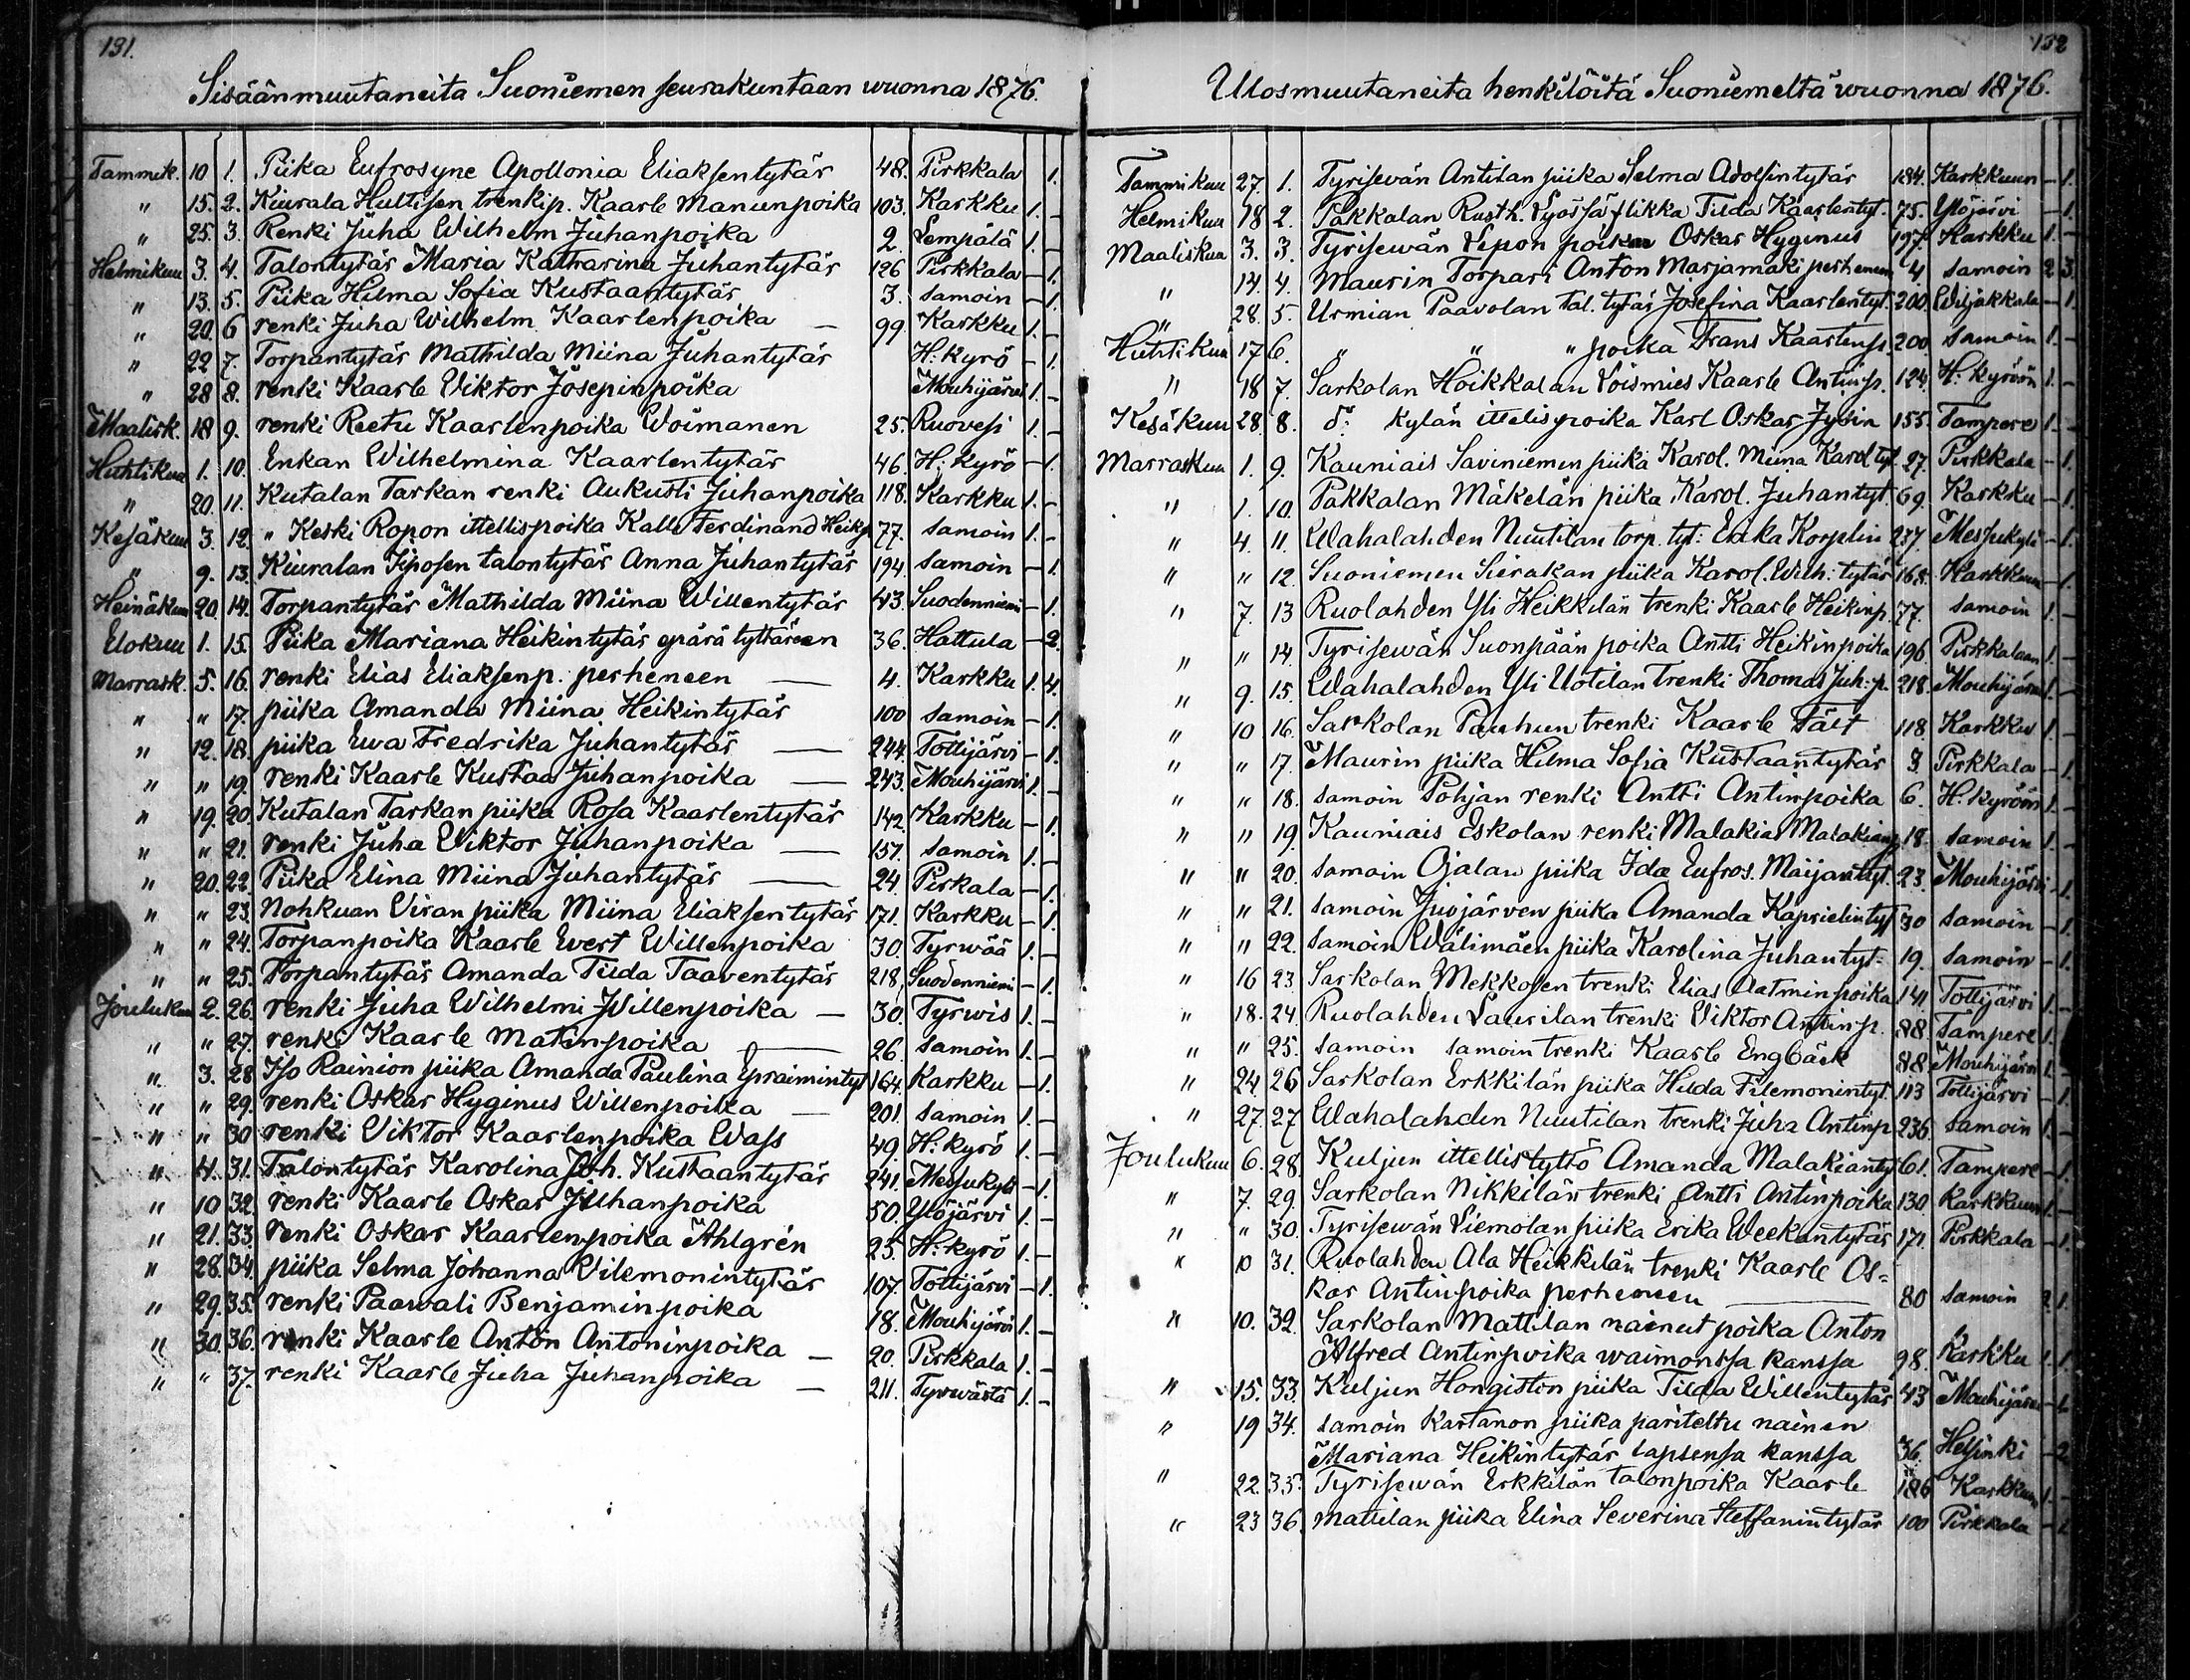 131.
Sisäänmuutaneita Suoniemen seurakuntaan vuonna 1876.
Tammik. 10 1. Piika Eufrosyne Apollonia Eliaksentytär 48. Pirkkala 1.
" 15. 2. Kiurala Hultisen trenkip. Kaarle Manunpoika 103. Karkku 1. –
" 25. 3. Renki Juha Wilhelm Juhanpoika 2. Lempälä 1. –
Helmikuu 3. 4. Talontytär Maria Katharina Juhantytär 126 Pirkkala – 1.
" 13. 5. Piika Hilma Sofia Kustaantytär 3. samoin – 1.
" 20. 6 renki Juha Wilhelm Kaarlenpoika – 99. Karkku 1. –
" 22 7. Torpantytär Mathilda Miina Juhantytär H: kyrö – 1.
" 28 8. renki Kaarle Viktor Josepinpoika Mouhijärvi 1. –
Maalisk. 18 9. renki Reetu Kaarlenpoika Woimanen 25. Ruovesi 1. –
Huhtikuu 1. 10. Enkan Wilhelmina Kaarlentytär 46. H: kyrö – 1.
" 20. 11. Kutalan Tarkan renki Aukusti Juhanpoika 118. Karkku 1. –
Kesäkuu 3. 12. " Keski Ropon ittellispoika Kalle Ferdinand Heikp 77. samoin 1. –
" 9. 13. Kiuralan Siposen talontytär Anna Juhantytär 194. samoin – 1.
Heinäkuu 20. 14. Torpantytär Mathilda Miina Willentytär 43. Suodenniemi – 1.
Elokuu 1. 15. Piika Mariana Heikintytär epärä tyttäreen 36. Hattula – 2.
Marrask. 5. 16. renki Elias Eliaksenp. perheneen — 4. Karkku 1. 4.
" " 17. piika Amanda Miina Heikintytär 100 samoin – 1.
" 12. 18. piika Ewa Fredrika Juhantytär — 244. Tottijärvi – 1.
" " 19. renki Kaarle Kustaa Juhanpoika — 243. Mouhijärvi 1. –
" 19. 20. Kutalan Tarkan piika Rosa Kaarlentytär 142. Karkku – 1.
" " 21. renki Juha Viktor Juhanpoika — 157. samoin 1. –
" 20. 22. Piika Elina Miina Juhantytär — 24. Pirkala – 1.
" " 23. Nohkuan Viran piika Miina Eliaksentytär 171. Karkku – 1.
" " 24. Torpanpoika Kaarle Evert Willenpoika 30. Tyrwää 1. –
" " 25. Torpantytär Amanda Tilda Taaventytär 218. Suodenniemi – 1.
Joulukuu 2. 26. renki Juha Wilhelmi Willenpoika – 30. Tyrwis 1. –
" " 27. renki Kaarle Matinpoika — 26. samoin 1. –
" 3. 28 Iso Rainion piika Amanda Paulina Epraimintyt 164. Karkku – 1.
" " 29. renki Oskar Hyginus Willenpoika – 201. samoin 1. –
" " 30 renki Viktor Kaarlenpoika Wass 49. H: kyrö 1. –
" 4. 31. Talontytär Karolina Joh. Kustaantytär 241. Messukylä – 1.
" 10 32. renki Kaarle Oskar Juhanpoika 50. Ylöjärvi 1. –
" 21. 33. renki Oskar Kaarlenpoika Ahlgrén 25. H: kyrö 1. –
" 28. 34. piika Selma Johanna Vilemonintytär 107. Tottijärvi – 1.
" 29. 35. renki Paawali Benjaminpoika 18. Mouhijärvi 1. –
" 30. 36. renki Kaarle Anton Antoninpoika – 20. Pirkkala 1. –
" " 37. renki Kaarle Juha Juhanpoika – 211. Tyrwästä 1. –
132
Ulosmuutaneita henkilöitä Suoniemeltä vuonna 1876.
Tammikuu 27. 1. Tyrisevän Antilan piika Selma Adolfintytär 184. Karkkuun – 1.
Helmikuu 18 2. Pakkalan Rusth. Lyössä flikka Tilda Kaarlentyt. 75. Ylöjärvi – 1.
Maaliskuu 3. 3. Tyrisewän Lepon poika Oskar Hyginus 197. Karkku 1. –
" 14. 4. Maurin Torpari Anton Marjamäki perheneen 4 samoin 2 3.
" 28. 5. Urmian Paavolan tal. tytär Josefina Kaarlentyt. 200. Wiljakkala – 1.
Huhtikuu 17 6. " " " poika Frans Kaarlenp. 200. samoin 1. –
" 18 7. Sarkolan Hoikkalan Loismies Kaarle Antinp. 124. H: kyröön 1. –
Kesäkuu 28. 8. d:o kylän ittelispoika Karl Oskar Jysin 155. Tampere 1. –
Marraskuu 1. 9. Kauniais Saviniemen piika Karol. Miina Karol tyt 27. Pirkkala – 1.
" 1. 10. Pakkalan Mäkelän piika Karol. Juhantyt. 69. Karkku – 1.
" 4. 11. Wahalahden Nuutilan torp. tyt: Erika Korplin 237. Messukylä – 1.
" " 12. Suoniemen Sierakan piika Karol. Wilh: tytär 168. Karkkuun – 1.
" 7. 13 Ruolahden Yli Heikkilän trenki Kaarle Heikinp. 77. samoin 1. –
" " 14. Tyrisewän Suonpään poika Antti Heikinpoika 196 Pirkkalaan 1. –
" 9. 15. Wahalahden Yli Uotilan trenki Thomas Juh:p. 218. Mouhijärvi 1. –
" 10 16. Sarkolan Pauhun trenki Kaarle Fält 118. Karkku 1. –
" " 17. Maurin piika Hilma Sofia Kustaantytär 3. Pirkkala – 1.
" " 18. samoin Pohjan renki Antti Antinpoika 6. H: kyröön 1. –
" " 19. Kauniais Eskolan renki Malakias Malakianp 18. samoin 1. –
" " 20. samoin Ojalan piika Ida Eufros. Maijantyt. 23. Mouhijärvi – 1.
" " 21. samoin Juojärven piika Amanda Kaprielintyt 30 samoin – 1.
" " 22. samoin Wälimäen piika Karolina Juhantyt: 19. samoin – 1.
" 16 23. Sarkolan Mekkosen trenki Elias Aatminpoika 141 Tottijärvi 1. –
" 18. 24. Ruolahden Laurilan trenki Viktor Antinp. 88. Tampere 1. –
" " 25. samoin samoin trenki Kaarle Engbäck 88. Mouhijärvi 1. –
" 24. 26 Sarkolan Erkkilän piika Hilda Filemonintyt. 113 Tottijärvi – 1.
" 27. 27 Wahalahden Nuutilan trenki Juha Antinp 236. samoin 1. –
Joulukuu 6. 28. Kuljun ittellistyttö Amanda Malakianty 61. Tampere – 1.
" 7. 29. Sarkolan Nikkilän trenki Antti Antinpoika 130 Karkkuun 1. –
" " 30. Tyrisewän Liemolan piika Erika Weekantytär 171. Pirkkala – 1.
" 10 31. Ruolahden Ala Heikkilän trenki Kaarle Os=
kar Antinpoika perheneen — 80 samoin 2 1.
" 10. 32. Sarkolan Mattilan nainut poika Anton
Alfred Antinpoika waimonssa kanssa 98. Karkku 1. 1.
" 15. 33. Kuljun Hongiston piika Tilda Willentytär 43 Mouhijärvi – 1.
" 19 34. samoin Kartanon piika pariteltu nainen
Mariana Heikintytär lapsensa kanssa 36. Helsinki – 2
" 22. 35. Tyrisewän Erkkilän talonpoika Kaarle 186 Karkkuun 1. –
" 23 36. Mattilan piika Elina Severina Steffanintytär 100 Pirkkala – 1.